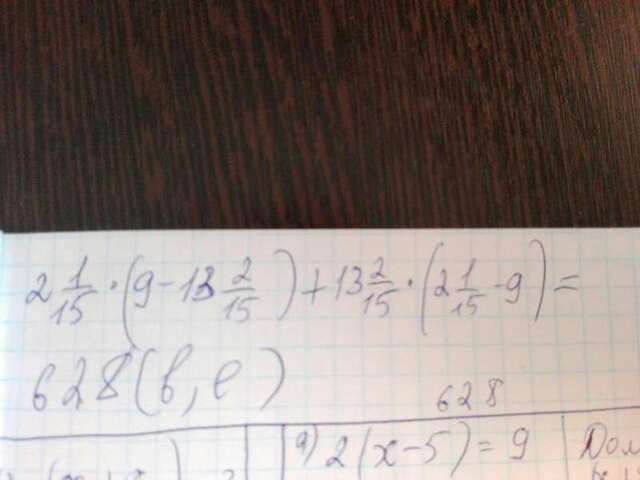 2 1/15 · (9 - 13 2/15) + 13 2/15 · (2 1/15 - 9) =
628(в, е)
628
а) 2(x-5) = 9
Дом